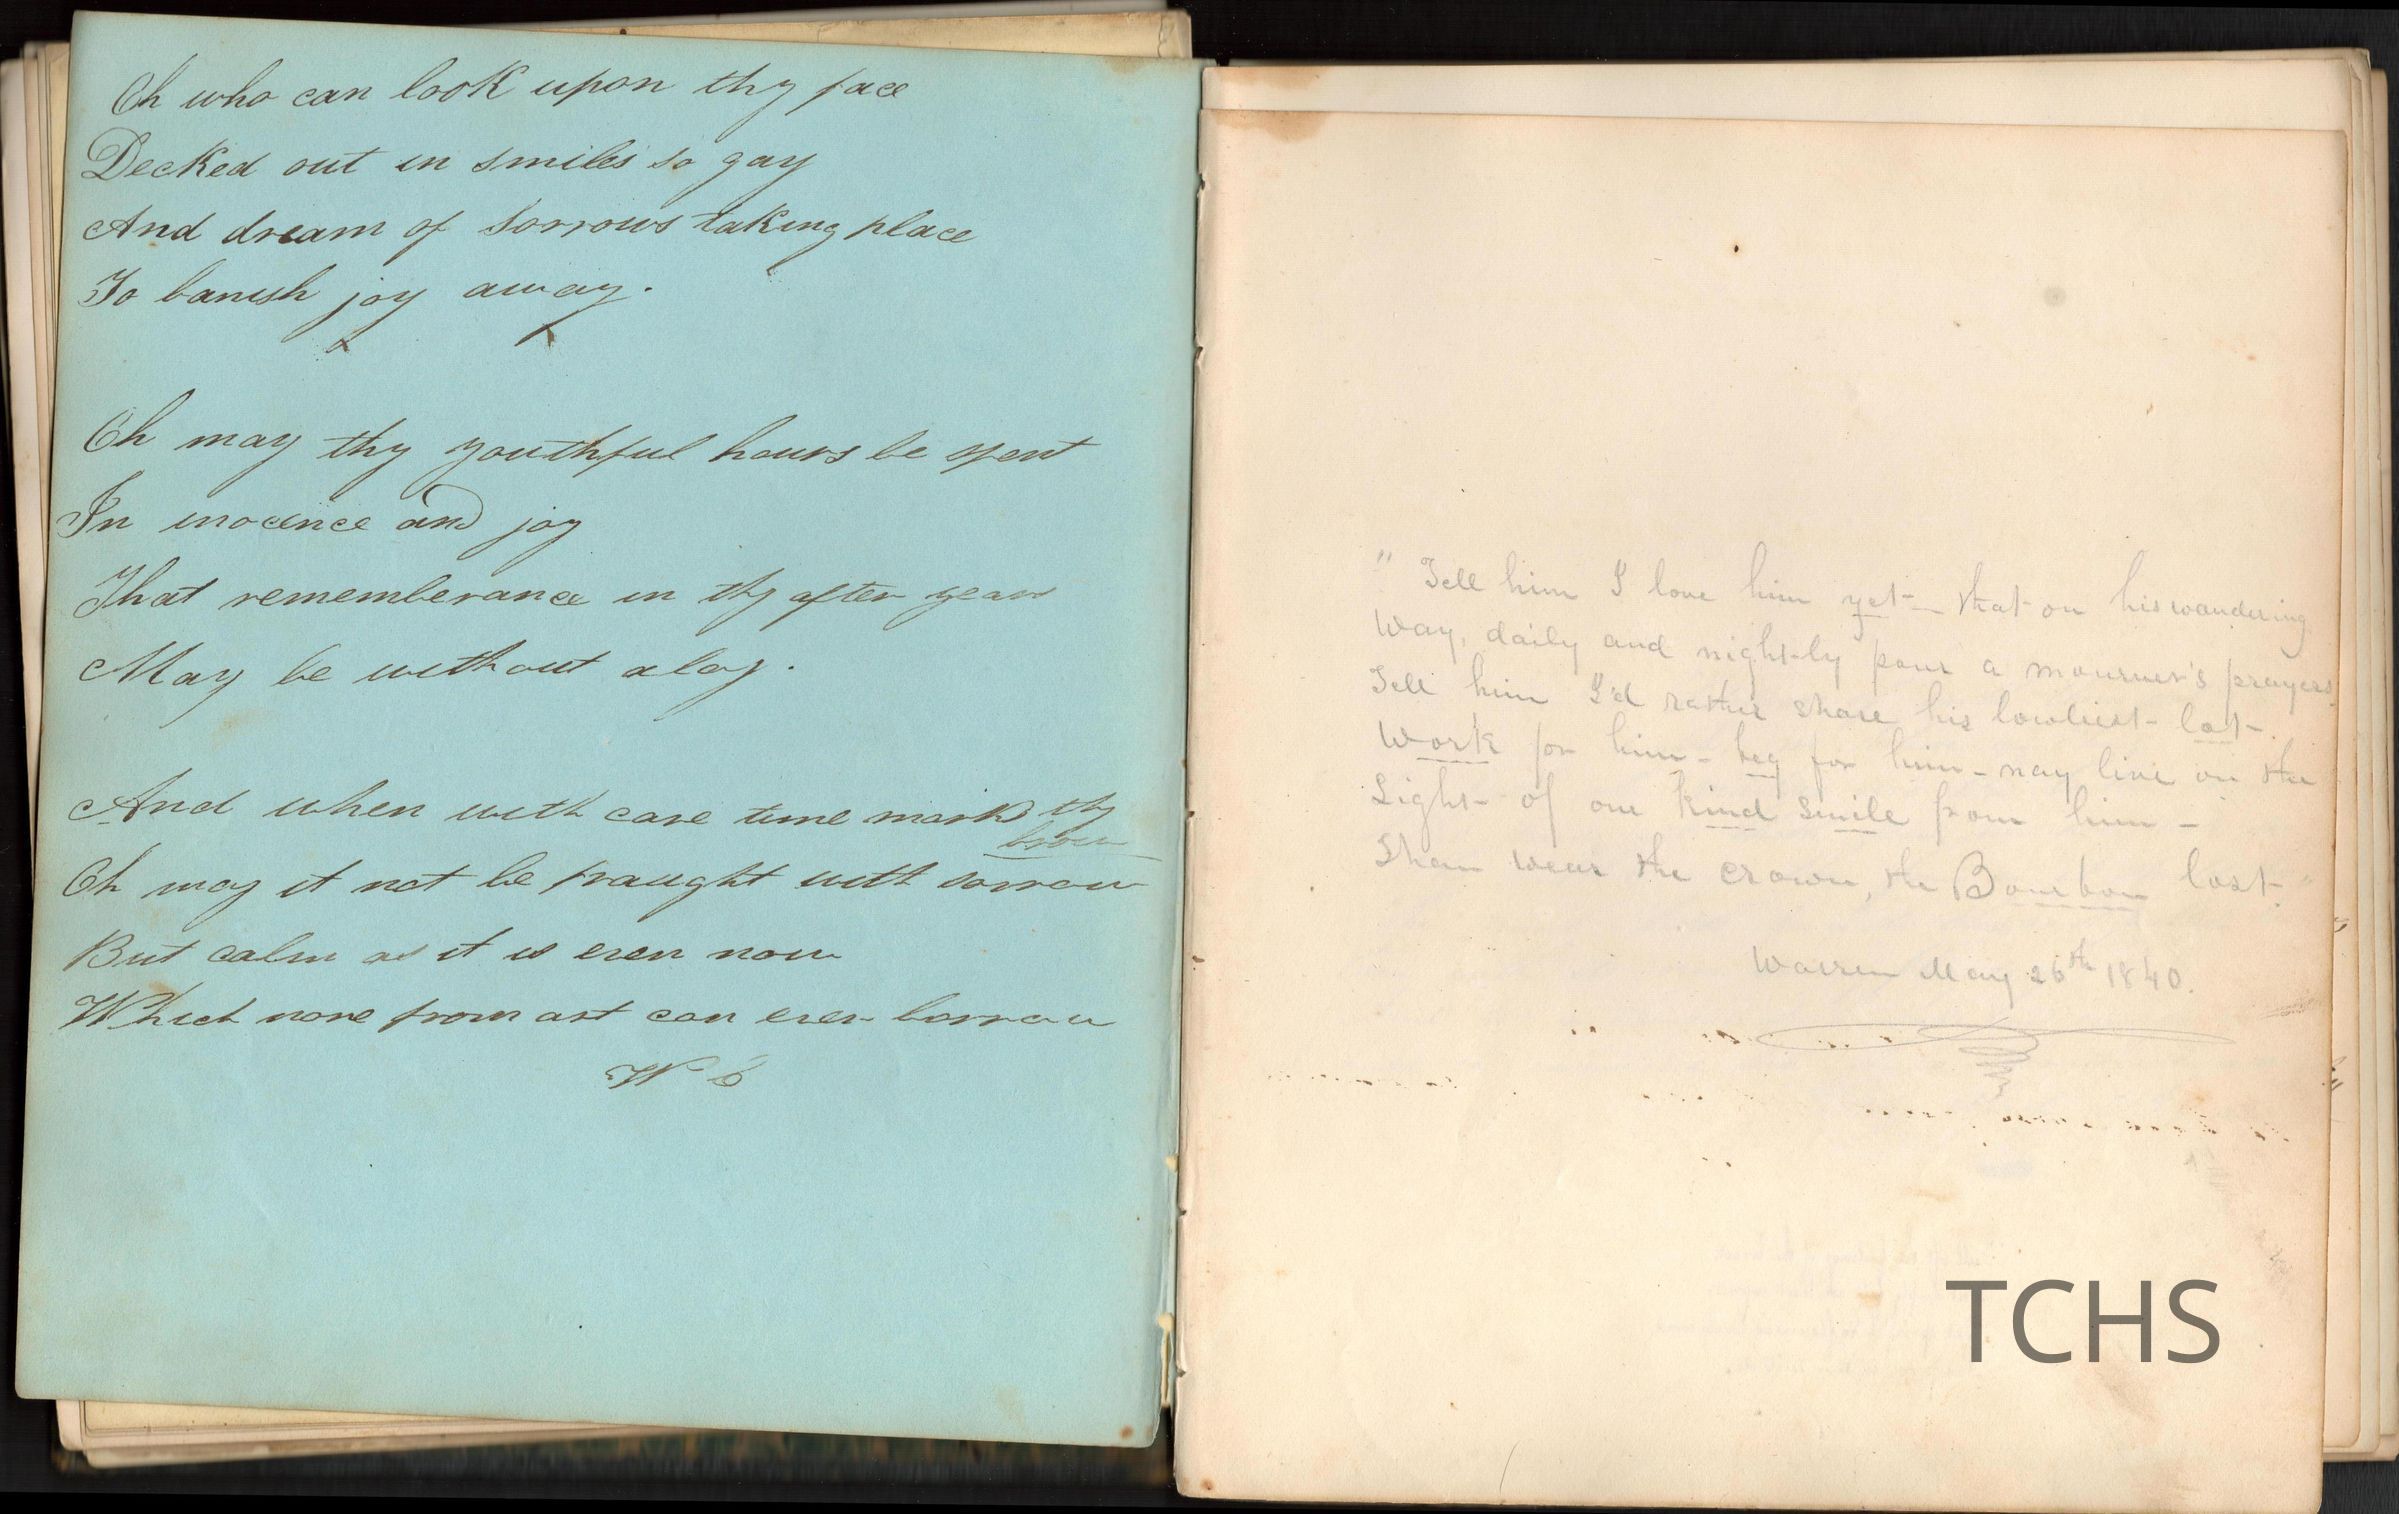 Oh who can look upon thy face
Decked out in smiles so gay
And dream of sorrows taking place
To banish joy away.
Oh may thy youthful hours be spent
In inocence and joy
That rememberance in thy after years
May be without aloy.
And when with care time marks thy
brow
Oh may it not be fraught with sorrow
But calm as it is even now
Which none from art can ever borrow
"Tell him I love him yet— that on his wandering
Way, daily and nightly pour a mourner's prayers.
Tell him I'd rather share his lowliest lot.
Work for him - beg for him - nay live on the
Light of one kind smile from him -
Than wear the crown, the Bourbon lost."
Warren May 26th 1840.
TCHS